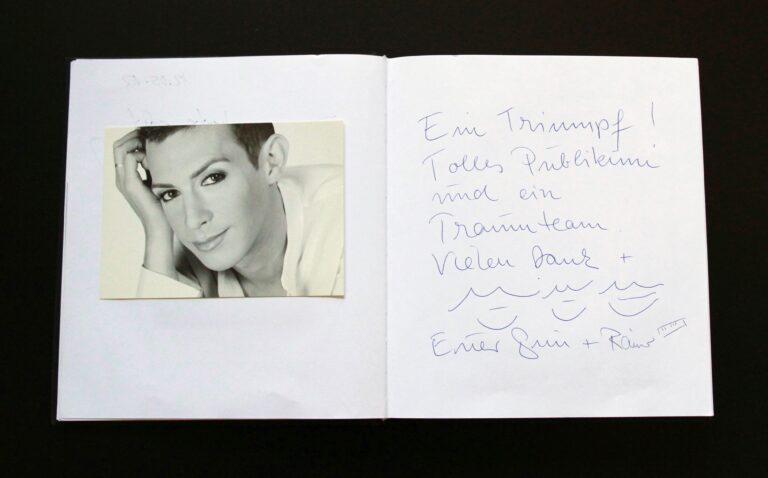 Ein Triumpf!
Tolles Publikum
und ein
Traumteam.
Vielen Dank +
Euer + Rainer